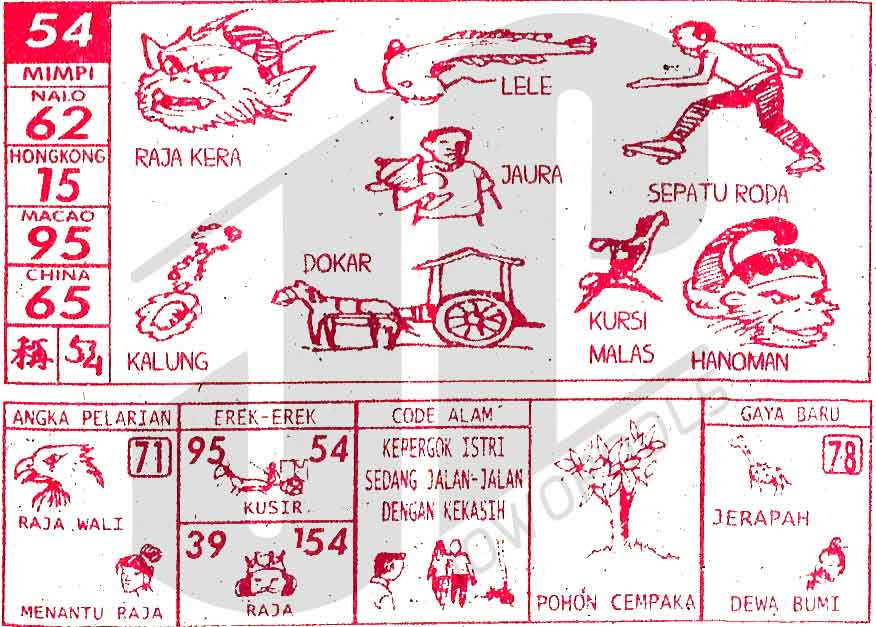 54
MIMPI
NALO
62
HONGKONG
15
MACAO
95
CHINA
65
54
RAJA KERA
LELE
JAURA
SEPATU RODA
DOKAR
KALUNG
KURSI
MALAS
HANOMAN
ANGKA PELARIAN
71
RAJA WALI
MENANTU RAJA
EREK-EREK
95 54
KUSIR
39 154
RAJA
CODE ALAM
KEPERGOK ISTRI
SEDANG JALAN-JALAN
DENGAN KEKASIH
POHON CEMPAKA
GAYA BARU
78
JERAPAH
DEWA BUMI